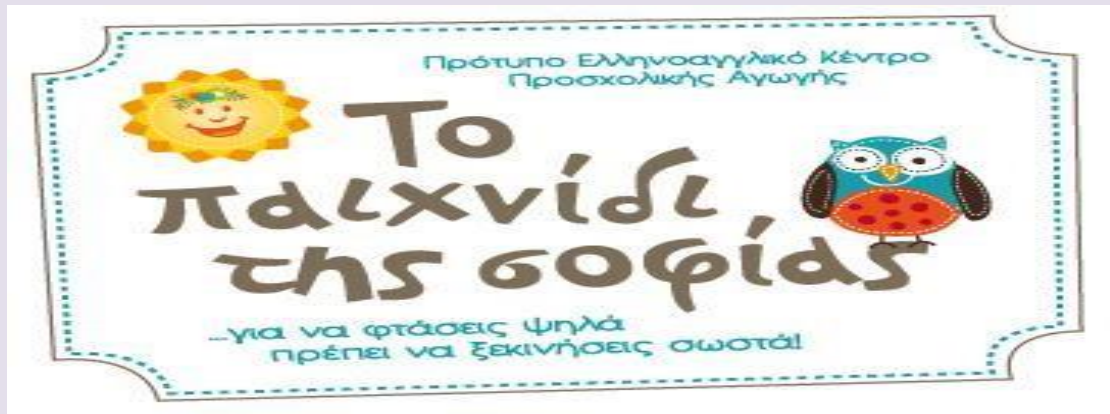 Πρότυπο Ελληνοαγγλικό Κέντρο
Προσχολικής Αγωγής
Το
παιχνίδι
της σοφίας
...για να φτάσεις ψηλά
πρέπει να ξεκινήσεις σωστά!